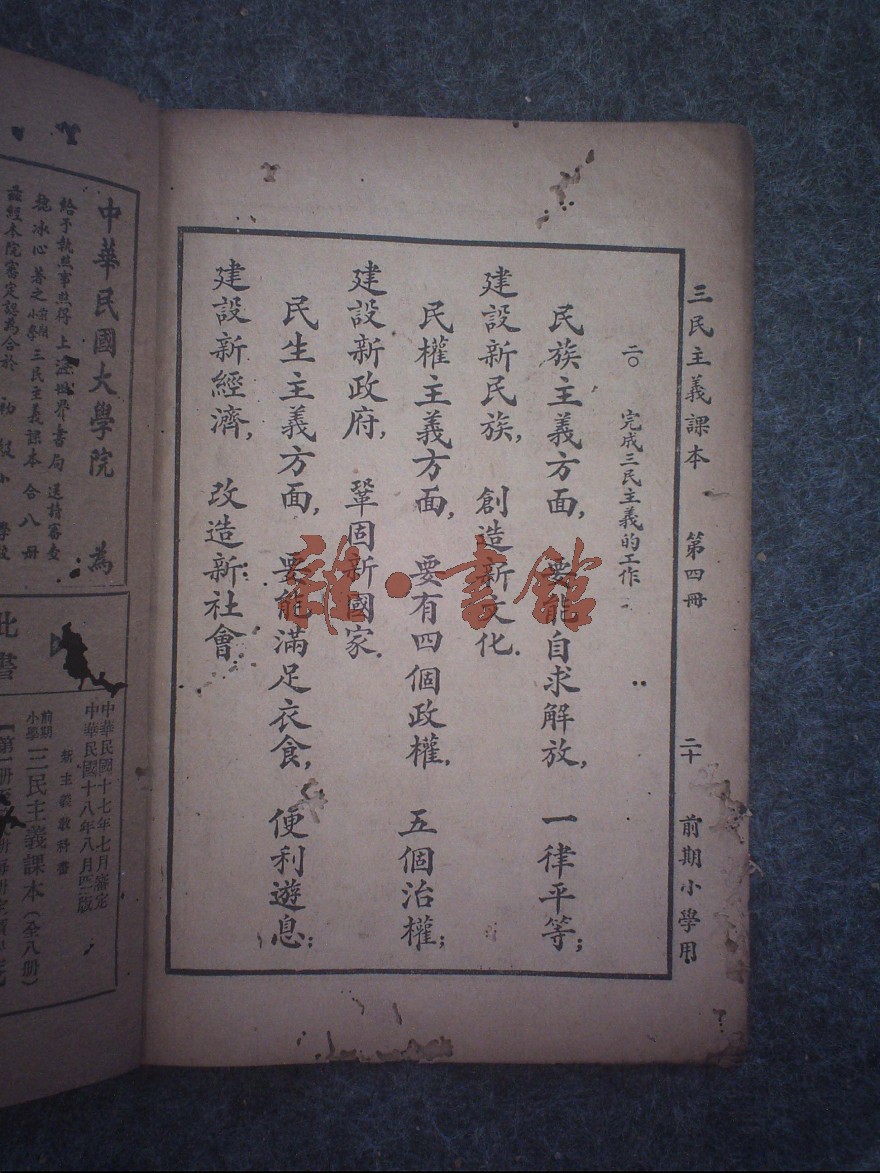 三民主義課本　第四冊　二十　前期小學用
二〇　完成三民主義的工作
民族主義方面，要能自求解放，一律平等；
建設新民族，創造新文化．
民權主義方面，要有四個政權，五個治權；
建設新政府，鞏固新國家．
民生主義方面，要能滿足衣食，便利遊息；
建設新經濟，改造新社會．
書館
中華民國大學院　為
給予執照事照得上海世界書局送請審查
魏冰心著之前期小學三民主義課本合八冊
茲經本院審定認為合於初級小學
此書
中華民國十七年七月審定
中華民國十八年八月四版
新主義教科書
前期小學三民主義課本（全八冊）